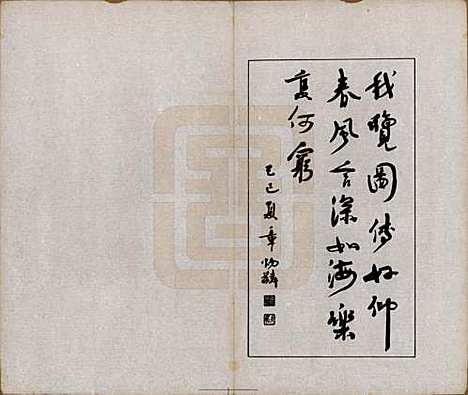 我覽圖傳如仰
春風言深如海樂
复何窮
己巳夏章炳麟